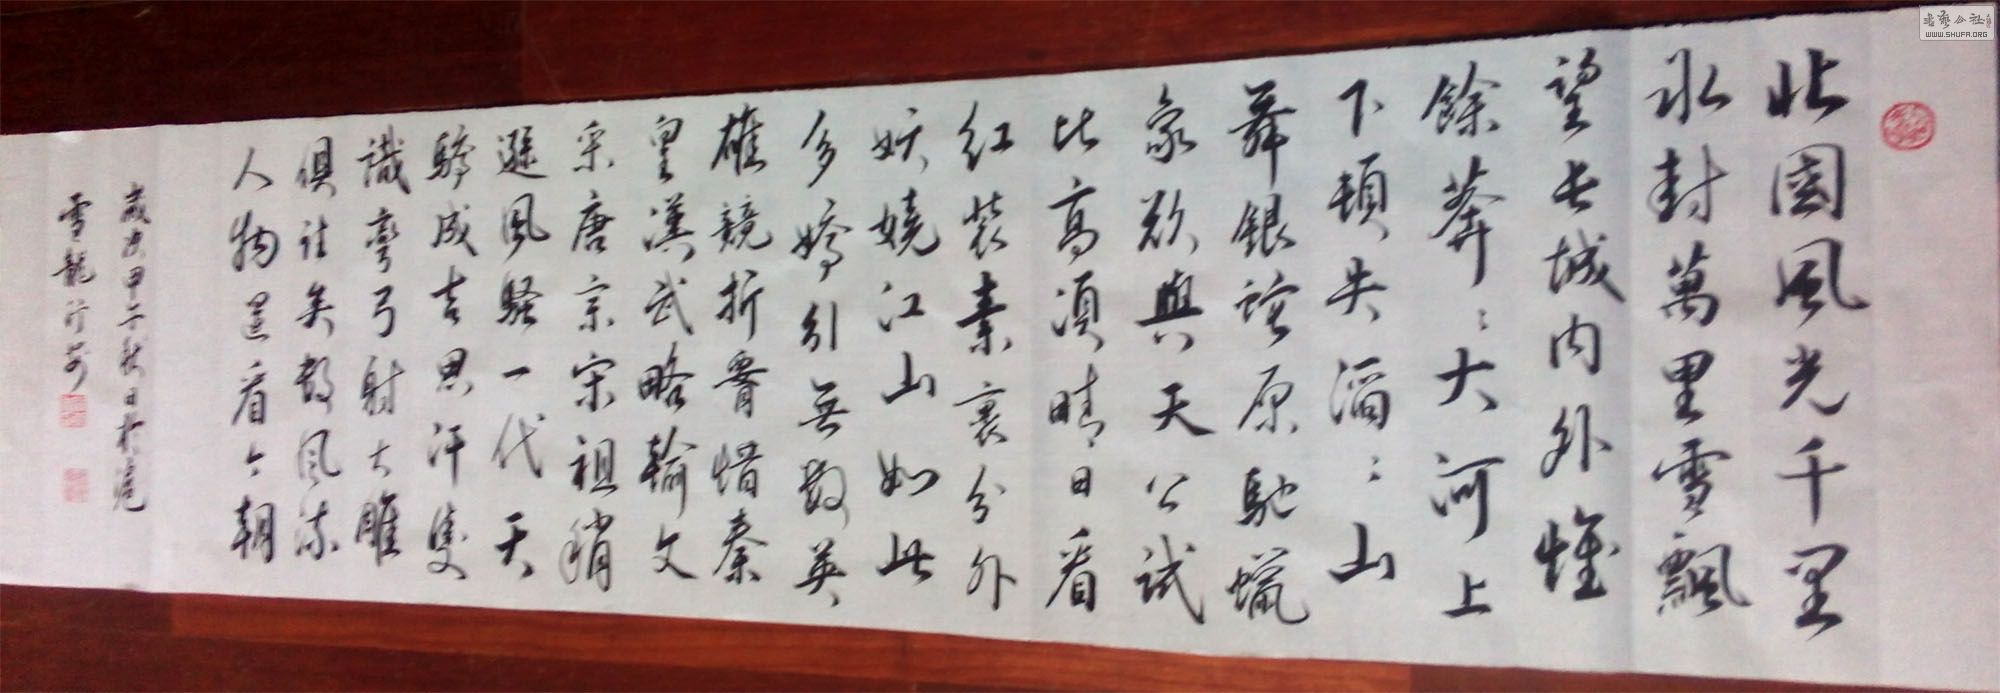 北國風光千里
冰封萬里雪飄
望長城内外惟
餘莽〻大河上
下頓失滔〻山
舞銀蛇原馳蠟
象欲與天公試
比高須晴日看
红裝素裹分外
妖嬈江山如此
多嬌引無數英
雄競折腰惜秦
皇漢武略輸文
采唐宗宋祖稍
遜風騷一代天
驕成吉思汗隻
識彎弓射大雕
俱往矣數風流
人物還看今朝
歲次甲午秋日於滬
雪龍行草
書藝公社
WWW.SHUFA.ORG